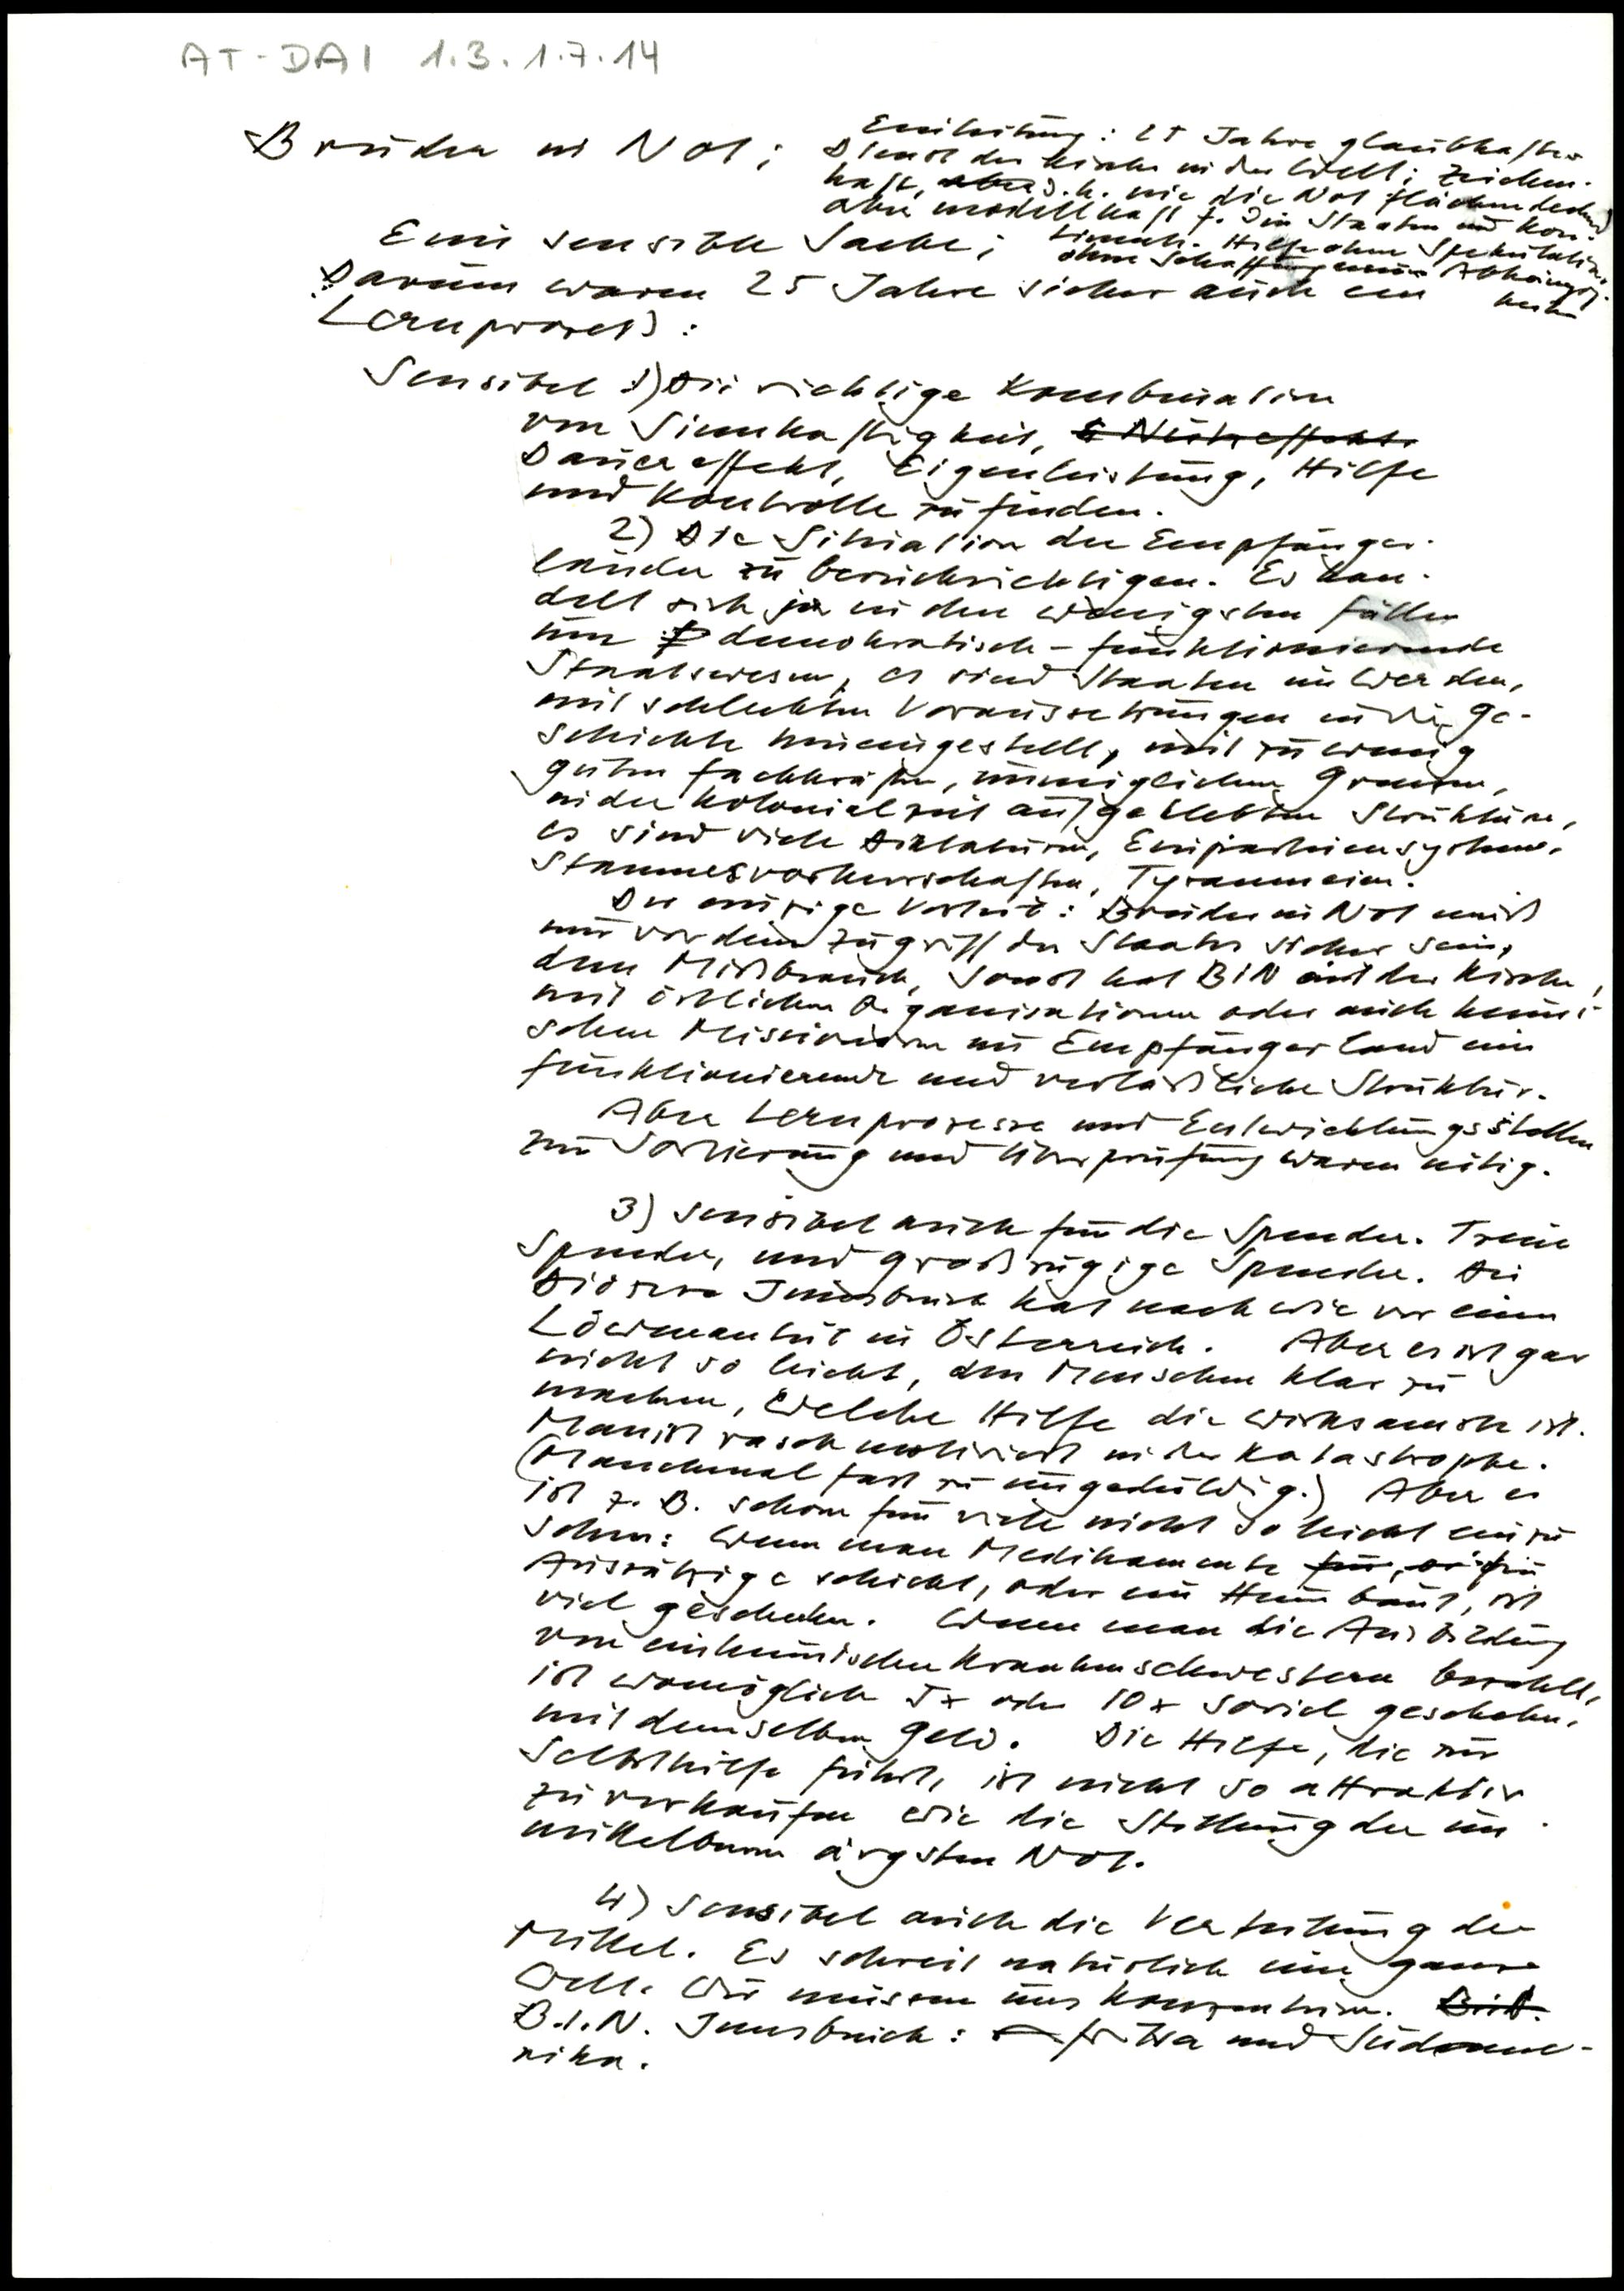 AT-DAI 1.3.1.7.14
Bruder in Not;
Einleitung: 25 Jahre glaubhafter
Dienst der Kirche in der Welt; zeichen-
haft, aber d.h. nie die Not flächendeckend
aber modellhaft f. die Staaten und Kon-
tinente. Hilfe ohne Spekulation,
ohne Schaffung neuer Abhängig-
keiten
Eine sensible Sache;
Darum waren 25 Jahre sicher auch ein
Lernprozeß:
Sensibel 1) Die richtige Kombination
von Sinnhaftigkeit,
Dauereffekt, Eigenleistung, Hilfe
und Kontrolle zu finden.
2) Die Situation der Empfänger-
länder zu berücksichtigen. Es han-
delt sich ja in den wenigsten Fällen
um demokratisch-funktionierende
Staatswesen, es sind Staaten im Werden,
mit schlechten Voraussetzungen in die Ge-
schichte hineingestellt, mit zu wenig
guten Fachkräften, unmöglichen Grenzen,
in der Kolonialzeit aufgeklebten Strukturen,
es sind viele Diktaturen, Einparteiensysteme,
Stammesvorherrschaften, Tyranneien.
Der einzige Vorteil: Bruder in Not muß
nur vor dem Zugriff der Staaten sicher sein,
dem Mißbrauch, sonst hat BIN mit der Kirche,
mit örtlichen Organisationen oder auch heimi-
schen Missionaren im Empfängerland eine
funktionierende und verläßliche Struktur.
Aber Lernprozesse und Entwicklungsstellen
zur Sortierung und Überprüfung waren nötig.
3) Sensibel auch für die Spender. Treue
Spender, und großzügige Spender. Die
Diözese Innsbruck hat nach wie vor einen
Löwenanteil in Österreich. Aber es ist gar
nicht so leicht, den Menschen klar zu
machen, welche Hilfe die wirksamste ist.
Man ist rasch motiviert in der Katastrophe.
(Manchmal fast zu ungeduldig.) Aber es
ist z. B. schon für viele nicht so leicht einzu-
sehen: Wenn man Medikamente für
Aussätzige schickt, oder ein Heim baut, ist
viel geschehen. Wenn man die Ausbildung
von einheimischen Krankenschwestern bezahlt,
ist womöglich 5x oder 10x soviel geschehen,
mit demselben Geld. Die Hilfe, die zur
Selbsthilfe führt, ist nicht so attraktiv
zu verkaufen wie die Stillung der un-
mittelbaren ärgsten Not.
4) Sensibel auch die Verteilung der
Mittel. Es schreit natürlich eine ganze
Welt. Wir müssen uns konzentrieren.
B.I.N. Innsbruck: und Südame-
rika.